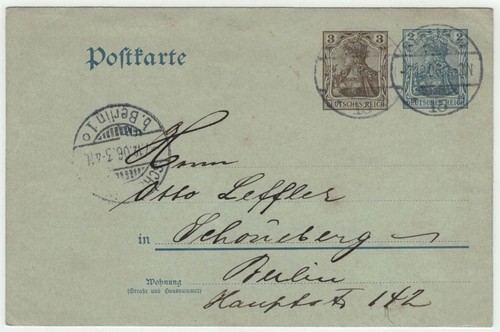 Postkarte
3
DEUTSCHES REICH
2
DEUTSCHES REICH
b. Berlin 1
.06.3-4N.
Herrn
Otto Leffler
in Schöneberg
Berlin
Wohnung
(Straße und Hausnummer)
Hauptstr 142